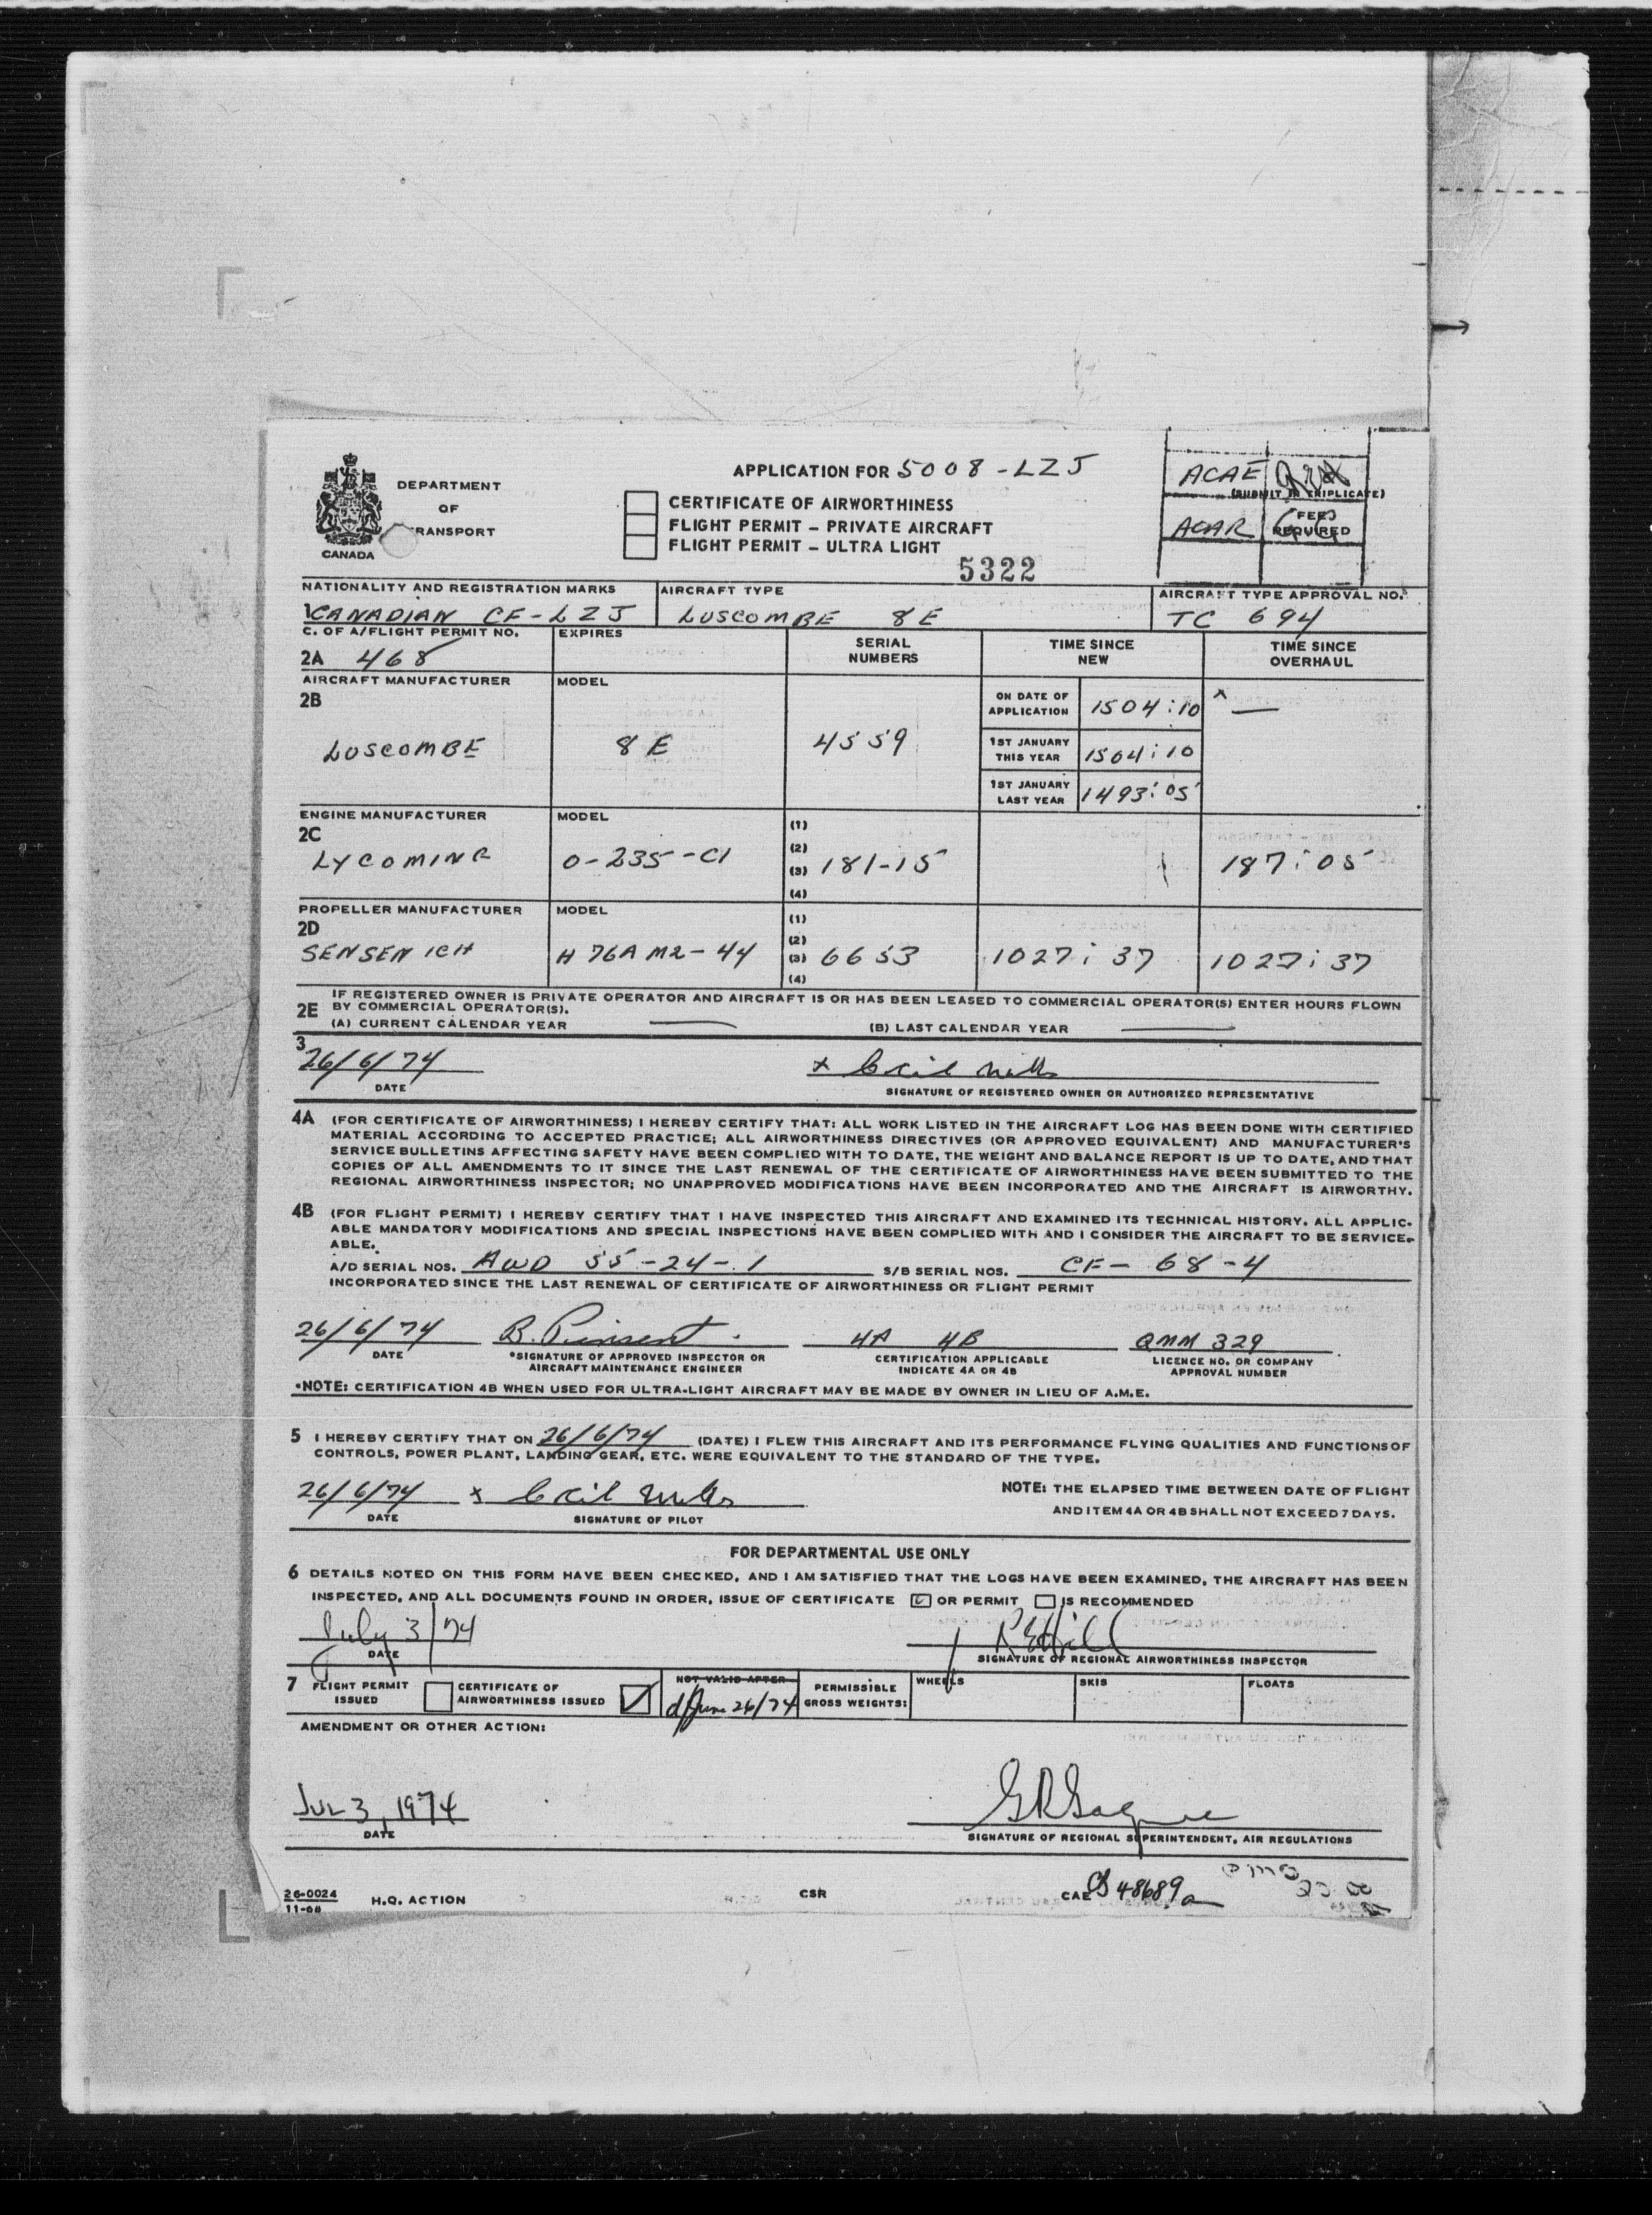 DEPARTMENT
OF
TRANSPORT
CANADA
APPLICATION FOR 5008-LZJ
CERTIFICATE OF AIRWORTHINESS
FLIGHT PERMIT – PRIVATE AIRCRAFT
FLIGHT PERMIT – ULTRA LIGHT
5322
ACAE
(SUBMIT IN TRIPLICATE)
ACAR
FEE
REQUIRED
NATIONALITY AND REGISTRATION MARKS AIRCRAFT TYPE AIRCRAFT TYPE APPROVAL NO.
CANADIAN CF-LZJ LUSCOMBE 8E TC 694
C. OF A/FLIGHT PERMIT NO. EXPIRES SERIAL NUMBERS TIME SINCE NEW TIME SINCE OVERHAUL
2A 468
AIRCRAFT MANUFACTURER MODEL
2B
ON DATE OF APPLICATION 1504:10 —
LUSCOMBE 8E 4559
1ST JANUARY THIS YEAR 1504:10
1ST JANUARY LAST YEAR 1493:05
ENGINE MANUFACTURER MODEL (1)
2C (2)
LYCOMING O-235-C1 (3) 181-15 187:05
(4)
PROPELLER MANUFACTURER MODEL (1)
2D (2)
SENSENICH H 76A M2-44 (3) 6653 1027:37 1027:37
(4)
2E IF REGISTERED OWNER IS PRIVATE OPERATOR AND AIRCRAFT IS OR HAS BEEN LEASED TO COMMERCIAL OPERATOR(S) ENTER HOURS FLOWN
BY COMMERCIAL OPERATOR(S).
(A) CURRENT CALENDAR YEAR — (B) LAST CALENDAR YEAR —
3
26/6/74 x Cecil Mills
DATE SIGNATURE OF REGISTERED OWNER OR AUTHORIZED REPRESENTATIVE
4A (FOR CERTIFICATE OF AIRWORTHINESS) I HEREBY CERTIFY THAT: ALL WORK LISTED IN THE AIRCRAFT LOG HAS BEEN DONE WITH CERTIFIED
MATERIAL ACCORDING TO ACCEPTED PRACTICE; ALL AIRWORTHINESS DIRECTIVES (OR APPROVED EQUIVALENT) AND MANUFACTURER'S
SERVICE BULLETINS AFFECTING SAFETY HAVE BEEN COMPLIED WITH TO DATE, THE WEIGHT AND BALANCE REPORT IS UP TO DATE, AND THAT
COPIES OF ALL AMENDMENTS TO IT SINCE THE LAST RENEWAL OF THE CERTIFICATE OF AIRWORTHINESS HAVE BEEN SUBMITTED TO THE
REGIONAL AIRWORTHINESS INSPECTOR; NO UNAPPROVED MODIFICATIONS HAVE BEEN INCORPORATED AND THE AIRCRAFT IS AIRWORTHY.
4B (FOR FLIGHT PERMIT) I HEREBY CERTIFY THAT I HAVE INSPECTED THIS AIRCRAFT AND EXAMINED ITS TECHNICAL HISTORY. ALL APPLIC-
ABLE MANDATORY MODIFICATIONS AND SPECIAL INSPECTIONS HAVE BEEN COMPLIED WITH AND I CONSIDER THE AIRCRAFT TO BE SERVICE-
ABLE.
A/D SERIAL NOS. AWD 55-24-1 S/B SERIAL NOS. CF-68-4
INCORPORATED SINCE THE LAST RENEWAL OF CERTIFICATE OF AIRWORTHINESS OR FLIGHT PERMIT
26/6/74 B. Pinsent 4A 4B QMM 329
DATE *SIGNATURE OF APPROVED INSPECTOR OR CERTIFICATION APPLICABLE LICENCE NO. OR COMPANY
AIRCRAFT MAINTENANCE ENGINEER INDICATE 4A OR 4B APPROVAL NUMBER
*NOTE: CERTIFICATION 4B WHEN USED FOR ULTRA-LIGHT AIRCRAFT MAY BE MADE BY OWNER IN LIEU OF A.M.E.
5 I HEREBY CERTIFY THAT ON 26/6/74 (DATE) I FLEW THIS AIRCRAFT AND ITS PERFORMANCE FLYING QUALITIES AND FUNCTIONS OF
CONTROLS, POWER PLANT, LANDING GEAR, ETC. WERE EQUIVALENT TO THE STANDARD OF THE TYPE.
26/6/74 x Cecil Mills NOTE: THE ELAPSED TIME BETWEEN DATE OF FLIGHT
DATE SIGNATURE OF PILOT AND ITEM 4A OR 4B SHALL NOT EXCEED 7 DAYS.
FOR DEPARTMENTAL USE ONLY
6 DETAILS NOTED ON THIS FORM HAVE BEEN CHECKED, AND I AM SATISFIED THAT THE LOGS HAVE BEEN EXAMINED, THE AIRCRAFT HAS BEEN
INSPECTED, AND ALL DOCUMENTS FOUND IN ORDER, ISSUE OF CERTIFICATE OR PERMIT IS RECOMMENDED
July 3/74 R E Hill
DATE SIGNATURE OF REGIONAL AIRWORTHINESS INSPECTOR
7 FLIGHT PERMIT ISSUED CERTIFICATE OF AIRWORTHINESS ISSUED NOT VALID AFTER June 26/74 PERMISSIBLE GROSS WEIGHTS: WHEELS SKIS FLOATS
AMENDMENT OR OTHER ACTION:
JUL 3, 1974
DATE SIGNATURE OF REGIONAL SUPERINTENDENT, AIR REGULATIONS
26-0024
11-68 H.Q. ACTION CSR CAE 48689